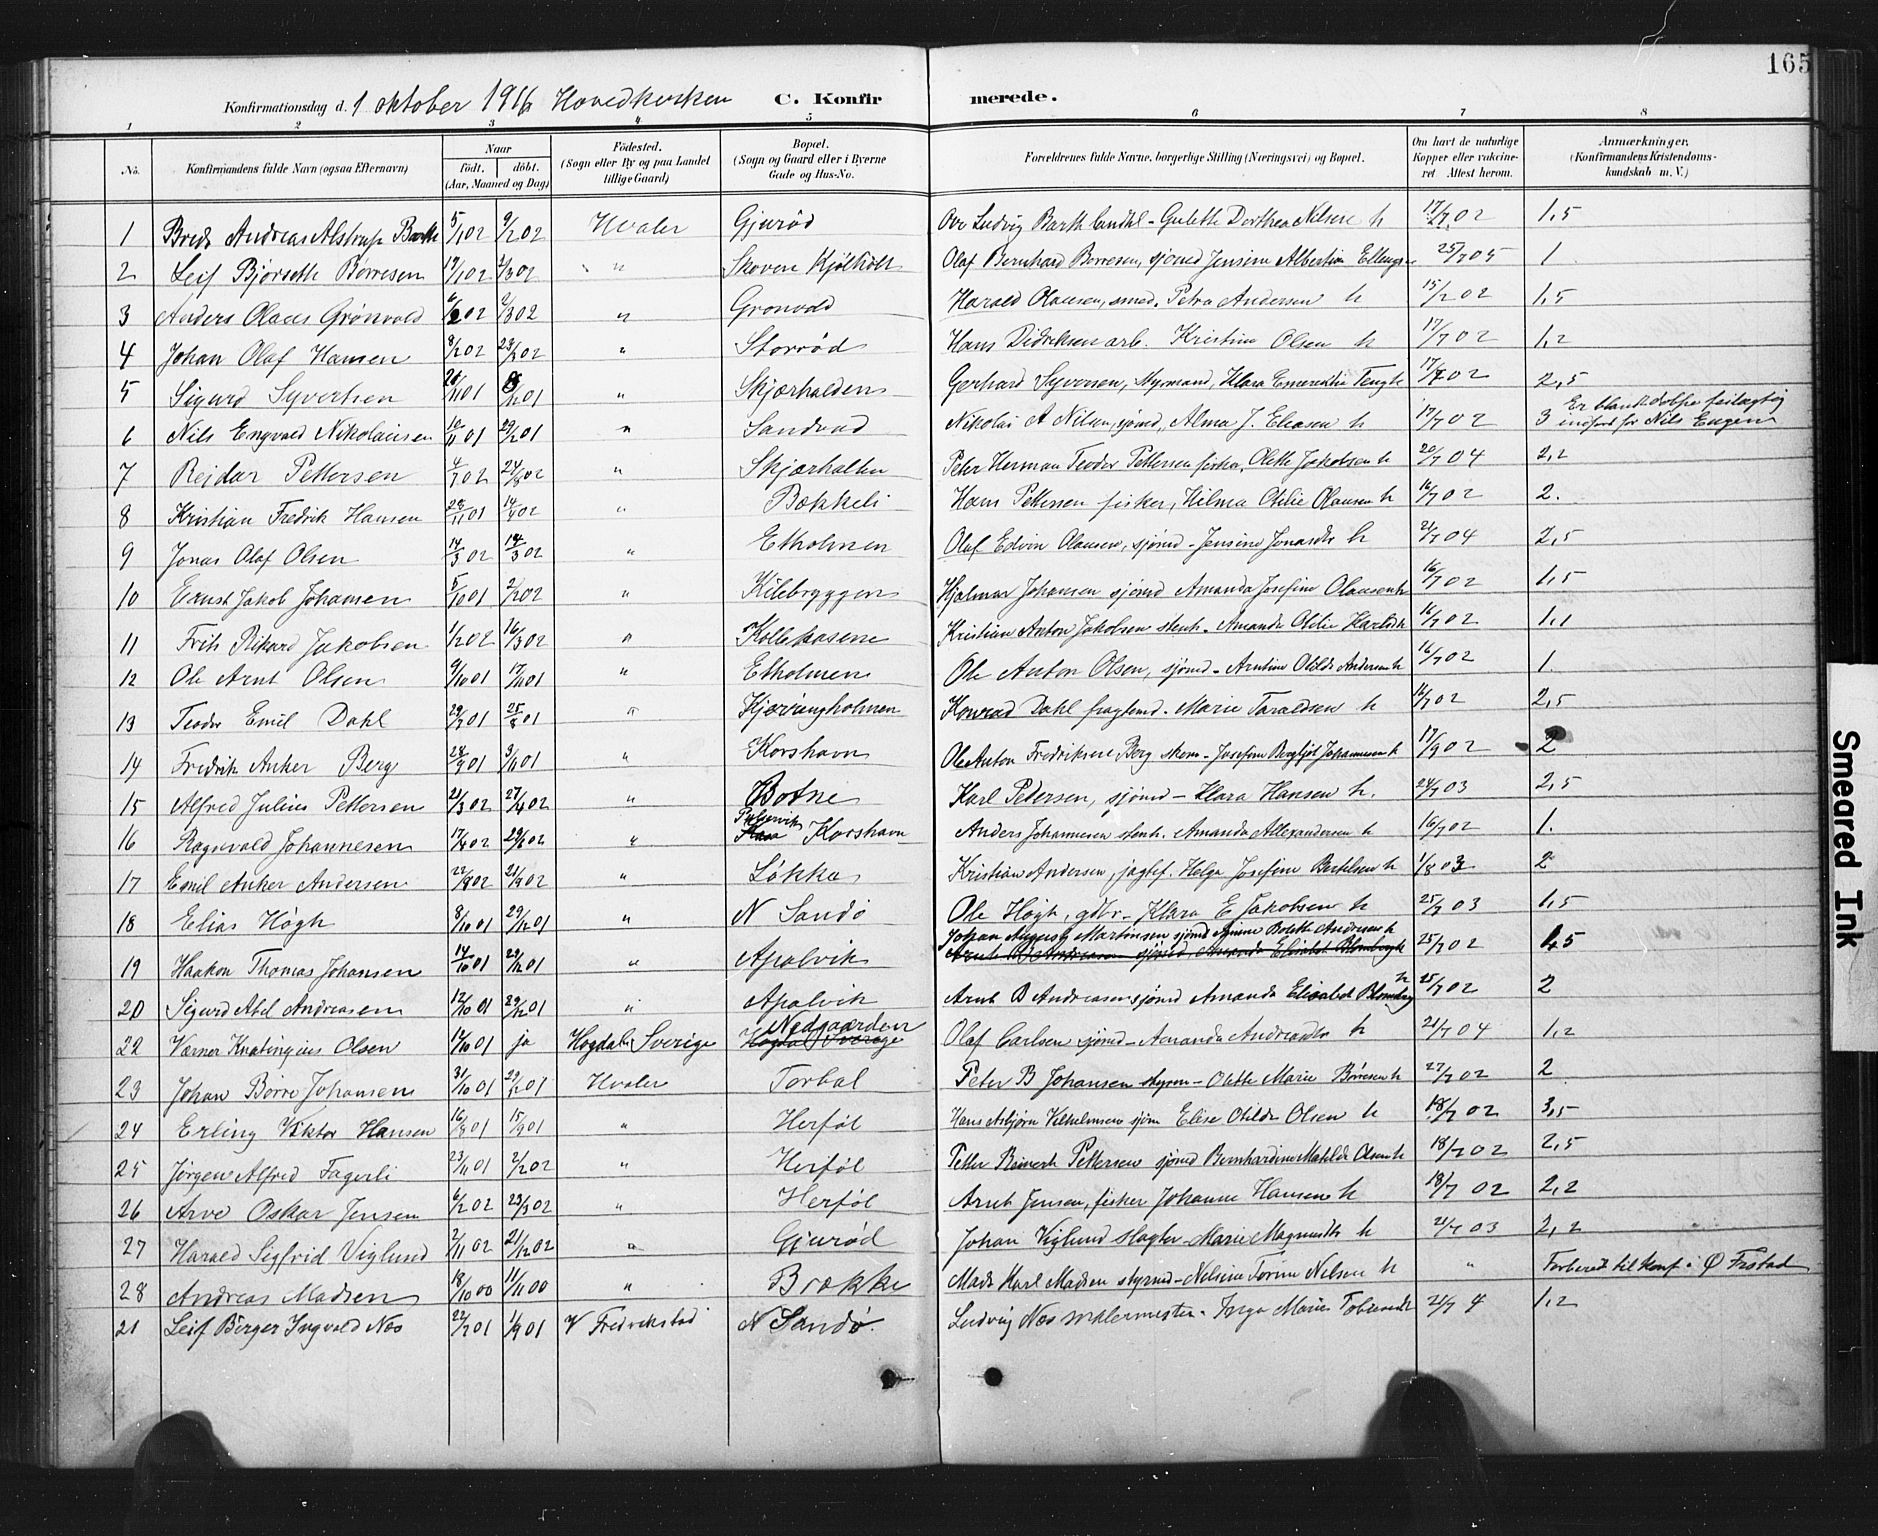 165
Konfirmationsdag d. 1 oktober 1916 Hovedkirken C. Konfirmerede.
1 2 3 4 5 6 7 8
No. Konfirmandens fulde Navn (ogsaa Efternavn) Naar født. døbt. (Aar, Maaned og Dag) Fødested. (Sogn eller By og paa Landet tillige Gaard) Bopæl. (Sogn og Gaard eller i Byerne Gade og Hus-No. Forældrenes fulde Navne, borgerlige Stilling (Næringsvei) og Bopæl. Om havt de naturlige Kopper eller vaccineret. Attest herom. Anmærkninger. (Konfirmandens Kristendomskundskab m. V.)
1 Brede Andreas Alstrup Barth 5/1 02 9/2 02 Hvaler Gjurød Ove Ludvig Barth landhl - Gulette Dorthea Nilsen h 17/7 02 1,5
2 Leif Bjørseth Børresen 17/1 02 2/3 02 " Skoven Kjølholt Olaf Bernhard Børresen, sjømd Jensine Albertine 25/7 05 1
3 Anders Olaus Grønvold 6/2 02 2/3 02 " Gronvold Harald Olausen, smed. Petra Andersen h 15/2 02 1,5
4 Johan Olaf Hansen 8/2 02 23/2 02 " Storrød Hans Didriksen arb. Kristine Olsen h 17/7 02 1,2
5 Sigurd Syvertsen 20/11 01 /12 01 " Skjærhalden Gerhard Syversen, Styrmand, Klara 17/7 02 2,5
6 Nils Engvald Nikolaisen 10/11 01 29/12 01 " Sandvad Nikolai A Nilsen, sjømd, Alma J. Eliasen h 17/7 02 3 Er blank feilagtig indført for Nils Eugen
7 Reidar Pettersen 4/7 02 24/8 02 " Skjærhallen Peter Herman Teodor Pettersen fisker, Olette Jakobsen h 20/7 04 2,2
8 Kristian Fredrik Hansen 28/11 01 " Bækkeli Hans Pettersen fisker, Hilma Otilie Olausen h 16/7 02 2.
9 Jonas Olaf Olsen 14/3 02 /3 02 " Etholmen Olaf Edvin Olausen, sjømd - Jensine Jonasdtr h 21/7 04 2,5
10 Ernst Jakob Johansen 5/10 01 2/2 02 " Kilebryggen Hjalmar Johansen sjømd Amanda Josefine Olausen h 16/7 02 1,5
11 Frits Rikard Jakobsen 1/2 02 16/3 02 " Kollehasene Kristian Anton Jakobsen stenh. Amanda Otilie 16/7 02 1,1
12 Ole Arnt Olsen 9/10 01 17/11 01 " Etholmen Ole Anton Olsen, sjømd - Arntine Otilde Andersen h 16/7 02 1.
13 Teodor Emil Dahl 29/7 01 25/8 01 " Kjærringholmen Konrad Dahl. Marie Taraldsen h 16/7 02 2,5
14 Fredrik Anker Berg 28/9 01 3/11 01 " Korshavn Ole Anton Fredriksen Berg - Josefine Bergljot Johannesen h 17/9 02 2
15 Alfred Julius Pettersen 21/3 02 27/4 02 " Botne Karl Pedersen, sjømd - Klara Hansen h. 24/7 03 2,5
16 Ragnvald Johannesen 17/4 02 29/6 02 " Korshavn Anders Johannesen stenh. Amanda Allexandersen h 16/7 02 1.
17 Emil Anker Andersen 22/8 02 21/9 02 " Løkka Kristian Andersen, jagtef. Helga Josefine Bertelsen h 1/8 03 2
18 Elias Høgh 8/10 01 29/12 01 " N Sandø Ole Høgh, gdbr - Klara E Jakobsen h 25/7 03 1,5
19 Haakon Thomas Johansen 14/10 01 29/12 01 " Apalvik Johan August Martinsen sjømd Anine Bolette Andersen h 25/7 02 1,5
Arnt B Andreasen sjømd, Amanda Elisabet Blomberg h
20 Sigurd Abel Andreasen 12/10 01 29/12 01 " Apalvik Arnt B Andreasen sjømd Amanda Elisabet Blomberg h 25/7 02 2
22 Værner Knatingius Olsen 14/10 01 ja Høgdal Sverige Nedgaarden Høgdal Sverige Olaf Carlsen sjømd - Amanda Andreasdtr h 21/7 04 1,2
23 Johan Børre Johansen 31/10 01 29/12 01 Hvaler Torbal Peter B Johansen styrm - Olette Marie Børresen h 27/7 02 2
24 Erling Viktor Hansen 16/8 01 15/9 01 " Herføl Hans Asbjørn Vilhelmsen sjøm Elise Otilde Olsen h 18/7 02 3,5
25 Jørgen Alfred Fagerli 23/11 01 2/2 02 " Herføl Petter Reinert Pettersen sjømd Bernhardine Matilde Olsen h 18/7 02 2,5
26 Arve Oskar Jensen 6/2 02 23/3 02 " Herføl Arnt Jensen, fisker Johanne Hansen h 18/7 02 2,2
27 Harald Sigfrid Viglund 2/11 02 21/12 02 " Gjurød Johan Viglund slagter - Marie Magnusdtr h 21/7 03 2,2
28 Andreas Madsen 18/10 00 11/11 00 " Brække Mads Karl Madsen styrmd - Nelsine Torine Nilsen h " Forberedt til konf. i Ø Frstad
21 Leif Birger Ingvald Næs 22/7 01 1/9 01 V Fredrikstad N Sandø. Ludvig Næs malermester. Inga Marie 21/7 4 1,2
Smeared Ink